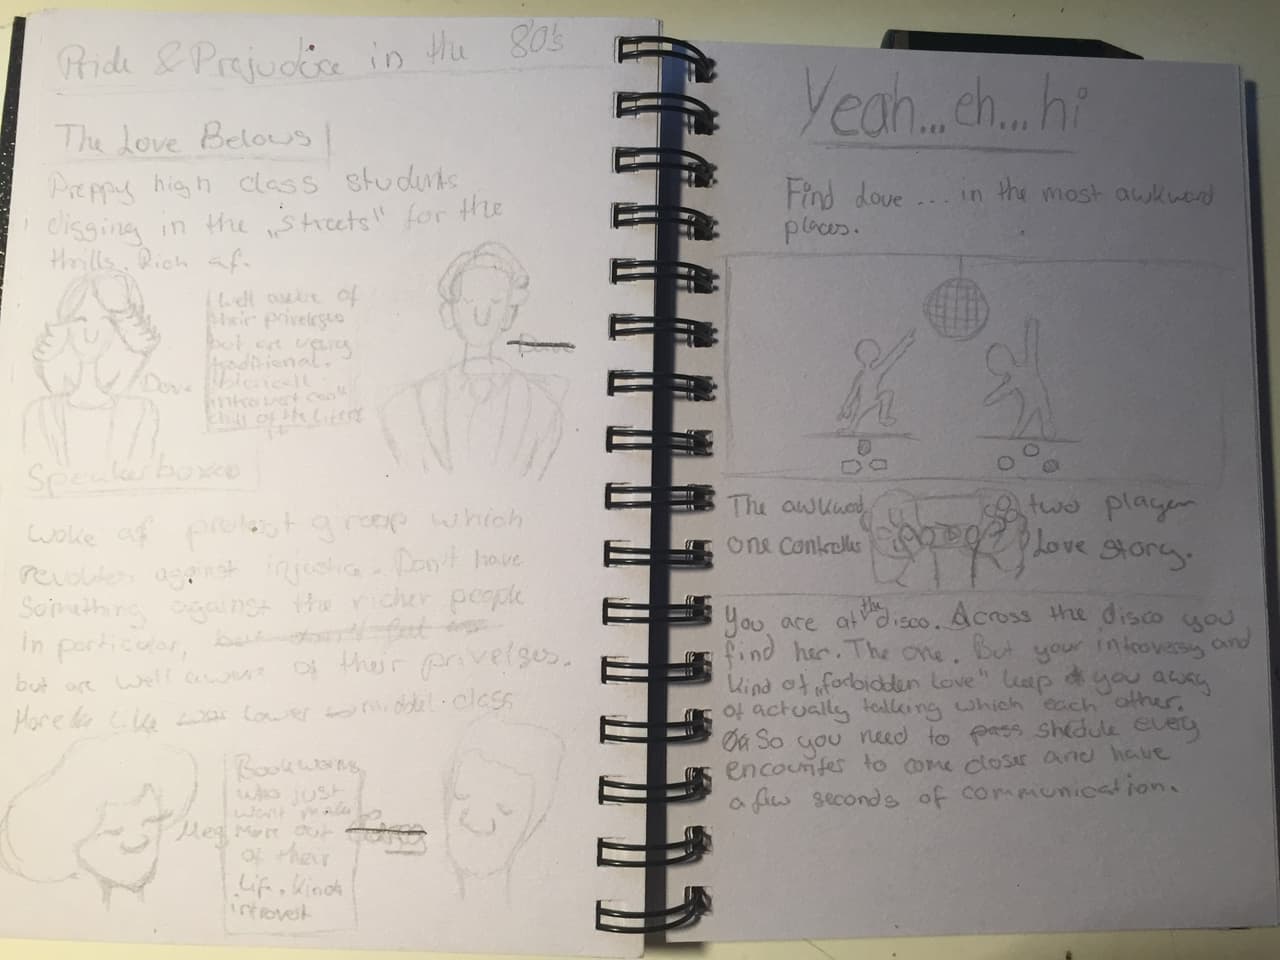 Pride & Prejudice in the 80's
The Love Belows
Preppy high class students
digging in the „streets" for the
thrills. Rich af.
Well aware of
their priveleges
but are very
traditional.
introvert
Dave
Speakerboxxx
Woke af protest group which
revolutes against injustice. Don't have
something against the richer people
In particular,
but are well aware of their privelges.
More like lower middel class
Bookworms
who just
want make
more out
of their
life. Kinda
introvest
Meg
Yeah...eh...hi
Find Love ... in the most awkward
places.
The awkward two player
one controller Love story.
You are at the disco. Across the disco you
find her. The one. But your introversy and
kind of „forbidden love" keep you away
of actually talking which each other.
So you need to pass shedule every
encounter to come closer and have
a few seconds of communication.